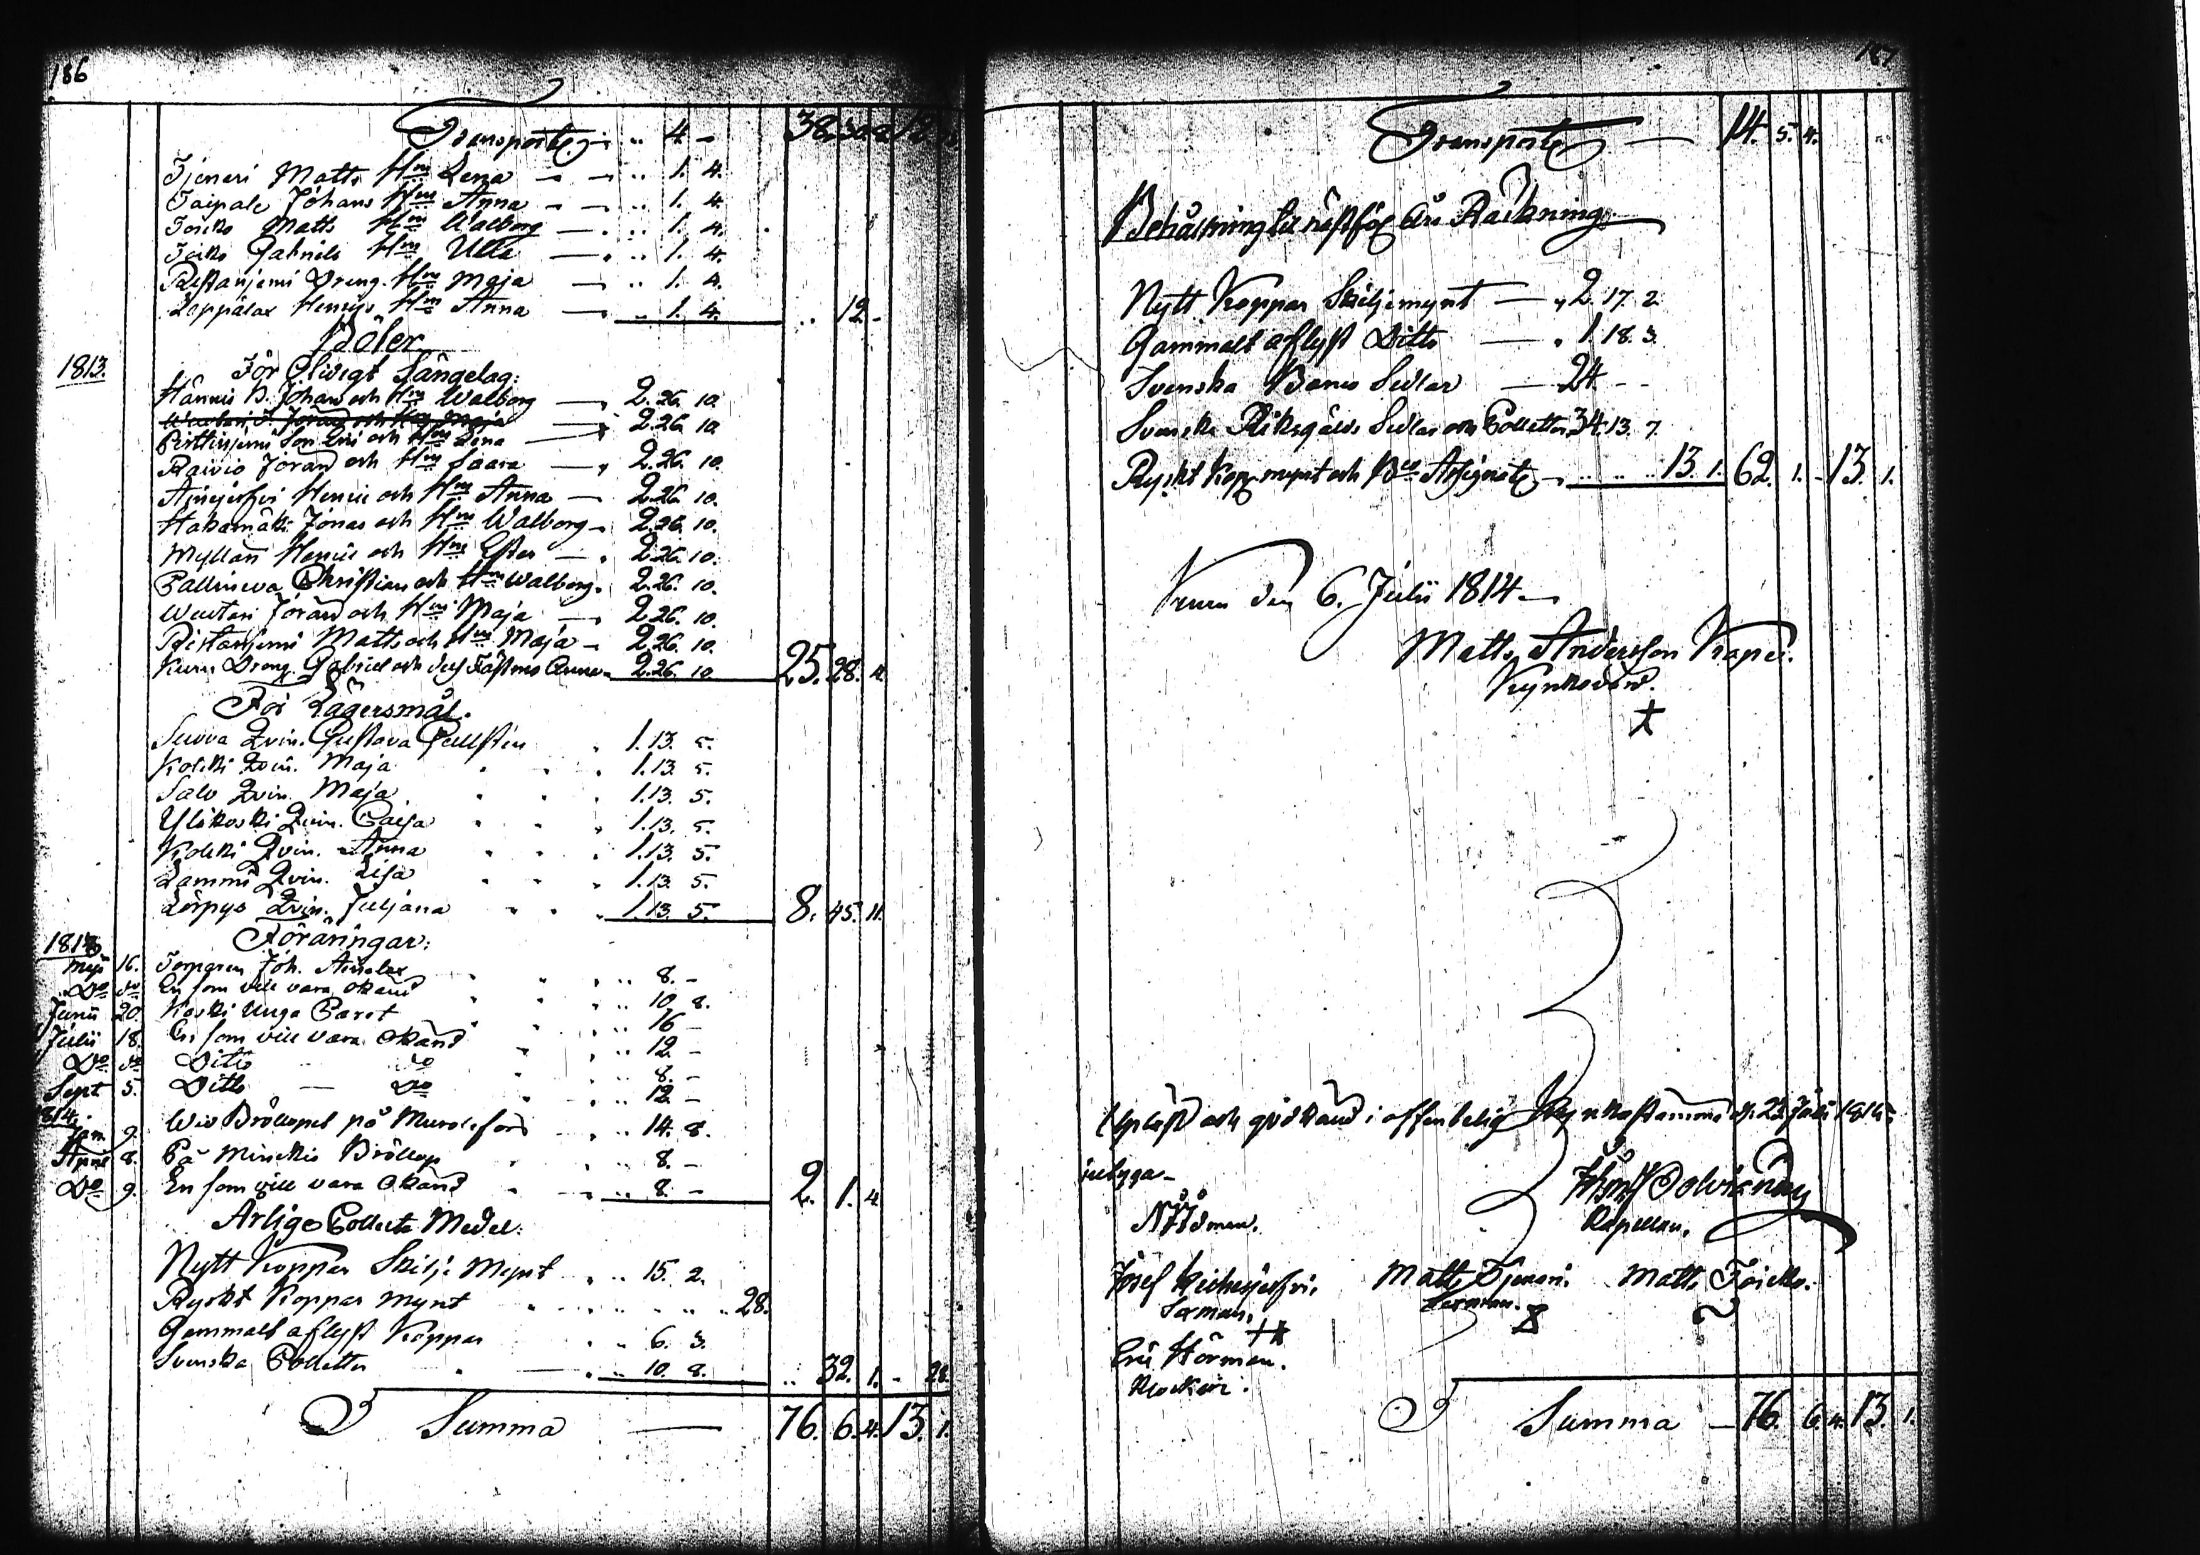 186
Transport .. 4 -
Tjeneri Matts H:m Lena - .. 1. 4.
Taipale Johans H:m Anna - .. 1. 4.
Joicko Matts H:m Walborg - .. 1. 4.
Joicko Gabriels H:m Ulla - .. 1. 4.
Ristaniemi Dreng. H:m Maja - .. 1. 4.
Leppälax Henrics H:m Anna - .. 1. 4. .. 12 -
Böter
1813. För Olidigt Sängelag:
Hännis B. Johan och H:m Walborg - 2. 26. 10.
2. 26. 10.
Perttuniemi Son Eric och H:m Lena
Raivio Jöran och H:m Saara - 2. 26. 10.
Henric och H:m Anna - 2. 26. 10.
Hakamäki Jonas och H:m Walborg - 2. 26. 10.
Myllari Henric och H:m Ester - 2. 26. 10.
Pallineva Christian och H:m Walborg. 2. 26. 10.
Wuotari Jöran och H:m Maja - 2. 26. 10.
Ristaniemi Matts och H:m Maja - 2. 26. 10.
Kuru Dreng Gabriel och dess Fästmö Anna - 2. 26. 10. 25. 28. 4.
För Lägersmål.
Qvin. Gustava 1. 13. 5.
Koski Qvin. Maja 1. 13. 5.
Salo Qvin. Maja 1. 13. 5.
Ylikoski Qvin. Caisa 1. 13. 5.
Koski Qvin. Anna 1. 13. 5.
Lammi Qvin. Lisa 1. 13. 5.
Qvin. Juljana 1. 13. 5. 8. 45. 11.
Föräringar:
1813
Maji 16. Torparen Joh. .. 8. -
D:o d:o En som vill vara okänd .. 10. 8.
Junii 20. Koski Unga Paret .. 16 -
Julii 18. En som vill vara okänd .. 12. -
D:o d:o Ditto d:o .. 8. -
Sept 5. Ditto — D:o .. 12 -
1814.
Jan. 9. Wid Bröllopet på .. 14. 8.
April 8. På Bröllop .. 8. -
D:o 9. En som vill vara okänd .. 8. - 2. 1. 4
Årlige Collecte Medel:
Nytt Koppar Skilje Mynt .. 15. 2.
Ryskt Koppar Mynt .. 28.
Gammalt aflyst Koppar .. 6. 3.
Svenska Polletter .. 10. 8. .. 32. 1. - 28.
Summa — 76. 6. 4. 13. 1.
187
Transport — 14. 5. 4.
Behållning til nästföl. Års Räkning:
Nytt Koppar Skiljemynt — " 2. 17. 2.
Gammalt aflyst Ditto — " 1. 18. 3.
Svenska Banco Sedlar — 24 - -
Svenska Riksgälds Sedlar och Polletter 34. 13. 7.
Ryskt Kopp. mynt och B:co Assignat - .. .. .. 13. 1. 62. 1. - 13. 1.
Kuru den 6. Julii 1814 -
Matts Andersson
Kyrkovärd.
Upläst och godkänd i offentelig Kyrkostämma d. 23 Julii 1814
Kapellan.
Josef
Sexman.
Matts Tjeneri
Sexman.
Matts Joicko.
Eric Hörman.
Klockare.
Summa — 76. 6. 4. 13. 1.